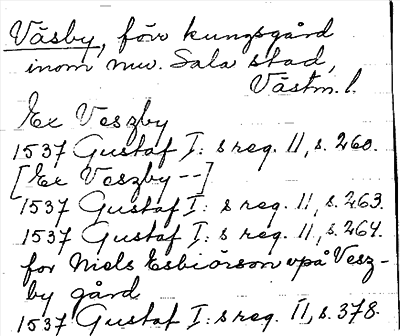 Väsby, förr kungsgård
inom nuv. Sala stad,
Västm. l.
Ex Veszby
1537 Gustaf I:s reg. 11, s. 260.
[Ex Veszby --]
1537 Gustaf I:s reg. 11, s. 263.
1537 Gustaf I:s reg. 11, s. 264.
for Niels Esbiörson vpå Vesz-
by gård
1537 Gustaf I:s reg. 11, s. 378.